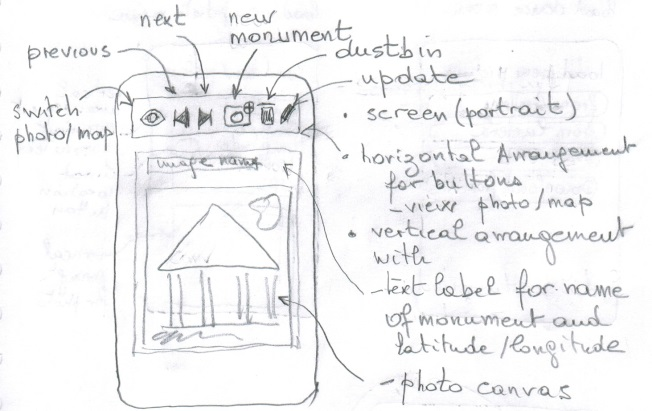 next
new
monument
previous
dustbin
update
switch
photo/map
• screen (portrait)
image name
• horizontal Arrangement
for buttons
- view photo/map
• vertical arrangement
with
- text label for name
of monument and
latitude/longitude
- photo canvas